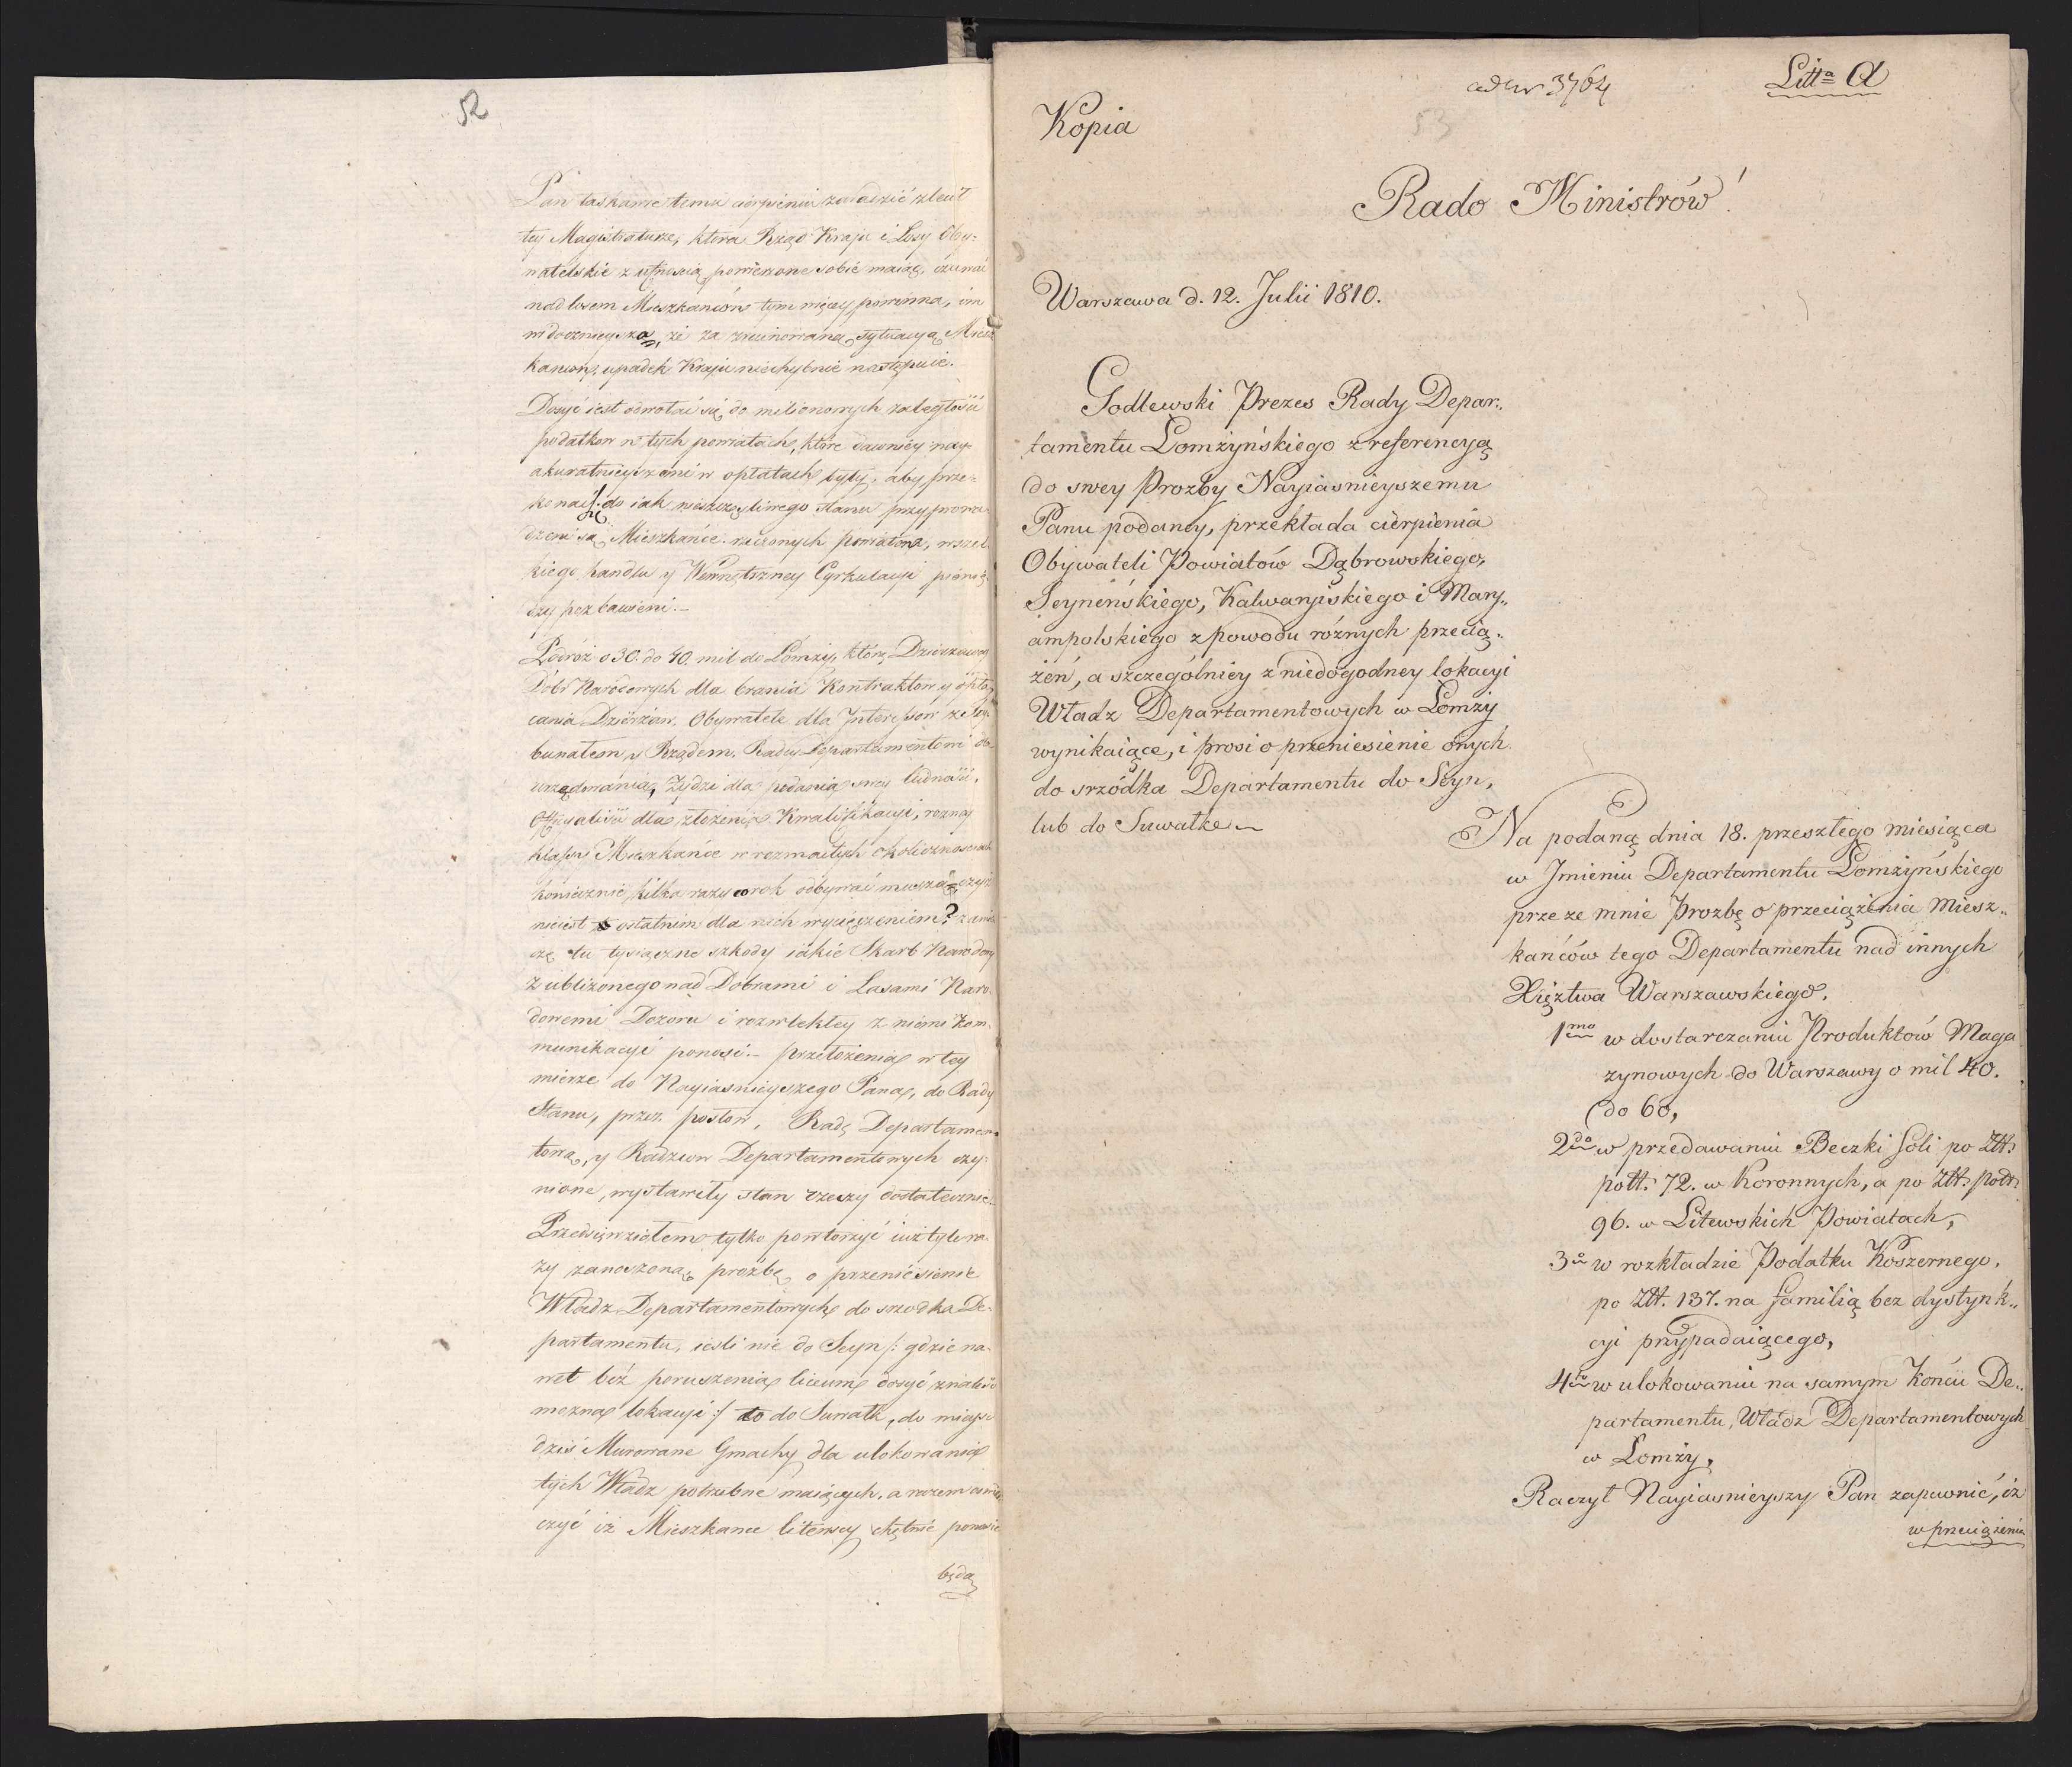 52
Pan łaskawie temu cierpieniu zaradzić zlecił
tey Magistraturze, która Rząd Kraju i Losy Oby=
watelskie z ufnością powierzone sobie maiąc, czuwać
nad losem Mieszkańców tym więcey powinna, im
widocznieysza, że za zruinowaną sytuacyą Miesz
kańców, upadek Kraju niechybnie nastąpuie.
Dosyć iest odwołać się do milionowych zaległości
podatkow w tych powiatach, które dawniey nay-
akuratnieyszemi w opłatach były, aby prze=
konać się do iak nieszczęśliwego stanu przyprowa
dzeni są Mieszkańce rzeczonych powiatow, wszel
kiego handlu y Wewnętrzney Cyrkulacyi pienię
dzy pozbawieni.-
Podróż o 30. do 40. mil do Łomży, którą Dzierżawcy
Dobr Narodowych dla brania Kontraktow y opła
cania Dzierżaw. Obywatele dla Interessów z Try
bunałem y Rządem. Radcy Departamentowi dla
urzędowania, Żydzi dla podania swey ludności,
Officyaliści dla złożenia Kwalifikacyi, rożney
klassy Mieszkańce w rozmaitych okolicznościach
koniecznie kilka razy w rok odbywać muszą, czyż
nie iest ostatnim dla nich wycięczeniem? zamil
czę tu tysiączne szkody iakie Skarb Narodowy
z ubliżonego nad Dobrami i Lasami Naro-
dowemi Dozoru i rozwlekłey z niemi kom-
munikacyi ponosi.- przełożenia w tey
mierze do Nayiasnieyszego Pana, do Rady
Stanu, przez posłow, Radę Departamen
tową, y Radzcow Departamentowych czy-
nione, wystawiły stan rzeczy dostatecznie.
Przedsięwziołem tylko powtorzyć iuż tyle ra-
zy zanoszoną proźbę o przeniesienie
Władz Departamentowych do srzodka De-
partamentu, iesli nie do Seyn /: gdzie na-
wet bez poruszenia liceum dosyć znaleść
można lokacyi :/ to do Suwałk, do mieysc
dziś Murowane Gmachy dla ulokowania
tych Władz potrzebne maiących, a razem oswiad
czyć iż Mieszkance litewscy chętnie ponosić
będą
ad Nr 3764
Litta A
53
Kopia
Rado Ministrów!
Warszawa d. 12. Julii 1810.
Godlewski Prezes Rady Depar„
tamentu Łomżyńskiego z referencyą
do swey Prozby Nayiasnieyszemu
Panu podaney, przekłada cierpienia
Obywateli Powiatów Dąbrowskiego,
Seyneńskiego, Kalwaryiskiego i Mary„
ampolskiego z powodu różnych przecią„
żeń, a szczególniey z niedogodney lokacyi
Władz Departamentowych w Łomży
wynikaiące, i prosi o przeniesienie onych
do srzódka Departamentu do Seyn,
lub do Suwałk
Na podaną dnia 18. przeszłego miesiąca
w Jmieniu Departamentu Łomżyńskiego
przeze mnie Prozbę o przeciążenia miesz„
kańców tego Departamentu nad innych
Xięztwa Warszawskiego.
1mo w dostarczaniu Produktów Maga
zynowych do Warszawy o mil 40.
do 60,
2do w przedawaniu Beczki soli po Złł.
poll. 72. w Koronnych, a po Złł. poll.
96. w Litewskich Powiatach,
3o w rozkładzie Podatku Koszernego,
po Złł. 137. na familią bez dystynk„
cyi przypadaiącego,
4to w ulokowaniu na samym końcu De„
partamentu, Władz Departamentowych
w Łomży,
Raczył Nayiasnieyszy Pan zapewnić, iż
w przeciążeniu